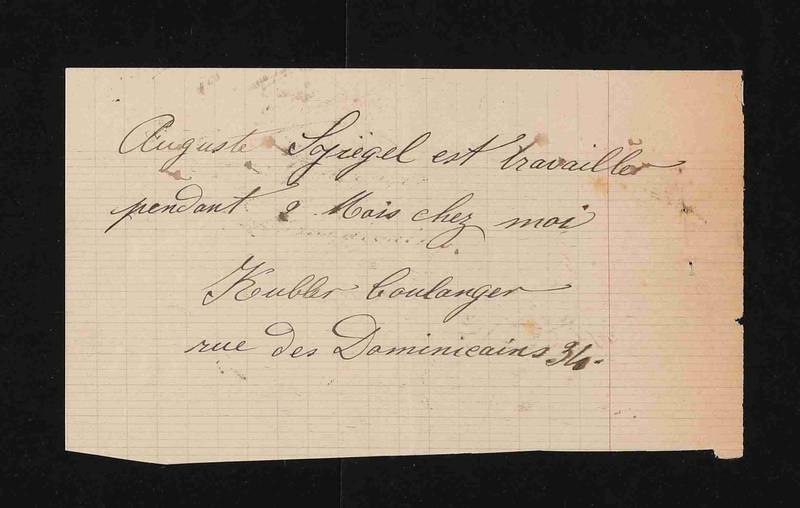 Auguste Spiegel est travailler
pendant 2 Mois chez moi
Kubler boulanger
rue des Dominicains 34